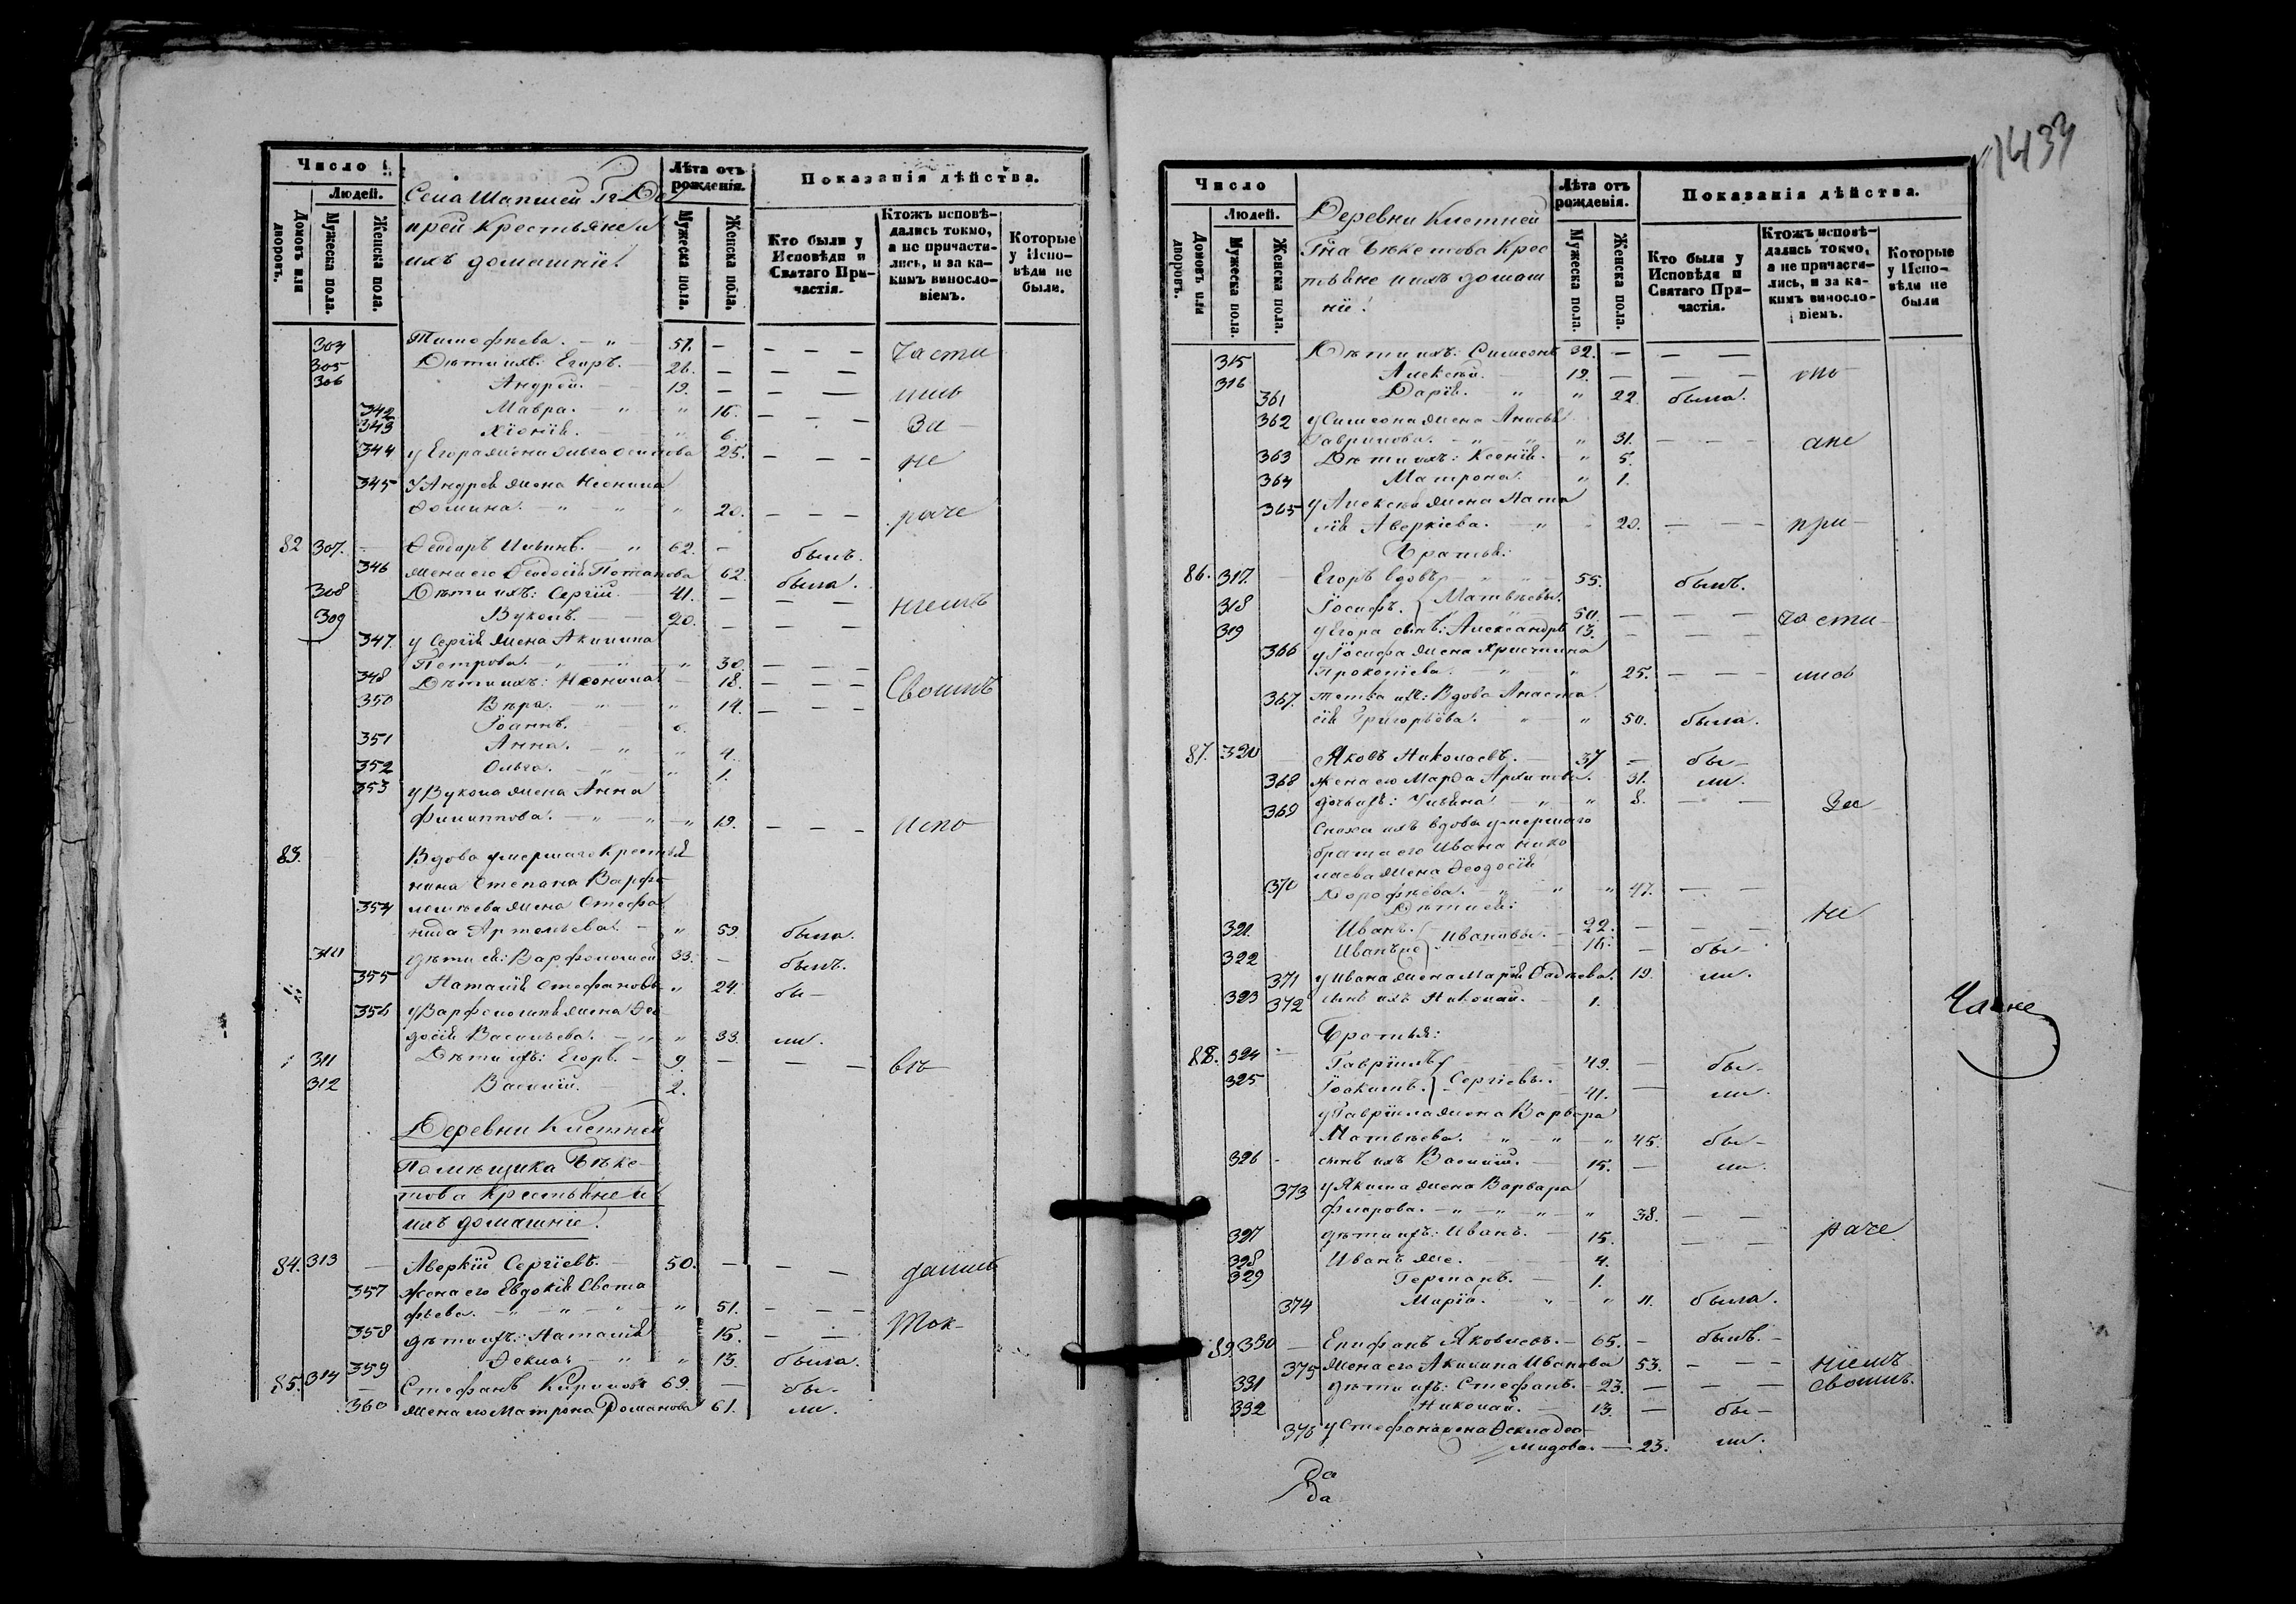 Число
Людей.
Домовъ или дворовъ.
Мужеска пола.
Женска пола.
Села Шапшей
крестьяне и
ихъ домашніе.
Лѣта отъ рожденія.
Мужеска пола.
Женска пола.
Показанія дѣйства.
Кто были у Исповѣди и Святаго Причастія.
Ктожъ исповѣ-
дались токмо,
а не причасти-
лись, и за ка-
кимъ винословіемъ.
Которые
у Испо-
вѣди не
были.
304 Тимофѣева. 51. — части
305 Дѣти ихъ: Егоръ. 26.
306 Андрей. 19.
342 Мавра. 16. за
343 Хіонія. 6.
344 у Егора жена Ольга Осипова 25. не
345 У Андрея жена Неонила
Фомина. 20. раче
82 307. Феодоръ Ильинъ. 62. былъ.
346 жена его Феодосія Потапова 62. была.
308 Дѣти ихъ: Сергій. 41.
309 Вуколъ. 20. ніемъ
347. у Сергія жена Акилина
Петрова. 30.
348 Дѣти ихъ: Неонила 18. Своимъ
350 Вѣра. 14.
Іоаннъ. 6.
351 Анна. 4.
352 Ольга. 1.
353 у Вукола жена Анна
Филиппова. 19. испо
83. Вдова умершаго крестья-
нина Степана Варфо-
354 ломѣева жена Стефа
нида Артемьева. 59. была.
310 дѣти ея: Варфоломей 33. былъ.
355 Наталія Стефанова 24. бы-
356 у Варфоломѣя жена Фео
досія Васильева. 33. ли.
311 Дѣти ихъ: Егоръ. 9. въ
312 Василій. 2.
Деревни Клетней
Помѣщика Бѣке-
това Крестьяне и
ихъ домашніе.
84. 313 Аверкій Сергіевъ. 50.
357 жена его Евдокія Евста
фьева. 51. Ток-
358 дѣти ихъ: Наталія 15.
359 Фекла. 13. была.
85. 314 Стефанъ Кириловъ 69. бы-
360 жена его Матрона Романова 61. ли.
1433
Число
Людей.
Домовъ или дворовъ.
Мужеска пола.
Женска пола.
Деревни Клетней
Гна Бѣкетова Крес
тьяне и ихъ домаш
ніе.
Лѣта отъ рожденія.
Мужеска пола.
Женска пола.
Показанія дѣйства.
Кто были у Исповѣди и Святаго При-
частія.
Ктожъ исповѣ-
дались токмо,
а не причасти-
лись, и за ка-
кимъ виносло-
віемъ.
Которые
у Испо-
вѣди не
были
315 Дѣти ихъ: Симеонъ 32.
316 Алексѣй. 19.
361 Дарія. 22. была.
362 у Симеона жена
Гаврилова. 31. а не
363 Дѣти ихъ: Ксенія. 5.
364 Матрона. 1.
365 у Алексѣя жена Ната
лія Аверкіева. 20. при-
Братья:
86. 317. Егоръ вдовъ 55. былъ.
318 Іосифъ. Матвѣевы. 50. части-
319 у Егора сынъ: Александръ 13.
366 у Іосифа жена Христина
Прокопіева. 25. лись
367. тетка ихъ: Вдова Анаста
сія Григорьева. 50. была.
87. 320 Яковъ Николаевъ. 37 бы-
368 жена его Марфа Архипова. 31. ли.
369 дочь ихъ: Ульяна 8. за-
Сноха ихъ вдова умершаго
брата его Ивана Нико
лаева жена Феодосія
370 Дорофѣева. 47.
Дѣти ея: не
321. Иванъ. Ивановы. 22.
322 Иванъ же бы-
371 у Ивана жена Марія Фадѣева. 19. ли.
323 372 сынъ ихъ Николай. 1.
Часне
Братья:
88. 324 Гавріилъ 49. бы-
325 Іоакимъ. Сергіевы. 41. ли.
у Гавріила жена Варвара
Матвѣева. 45. бы-
326 сынъ ихъ Василій. 15. ли.
373 у Якима жена Варвара
Фларова. 38.
327 дѣти ихъ: Иванъ. 15. раче
328 Иванъ же. 4.
329 Германъ. 1.
374 Марія. 11. была.
89. 330 Епифанъ Яковлевъ. 65. былъ.
375 жена его Акилина Иванова 53. ніемъ
331 дѣти ихъ: Стефанъ. 23. своимъ.
332 Николай. 13. бы-
376 у Стефана жена Фекла Део
мидова. 23. ли.